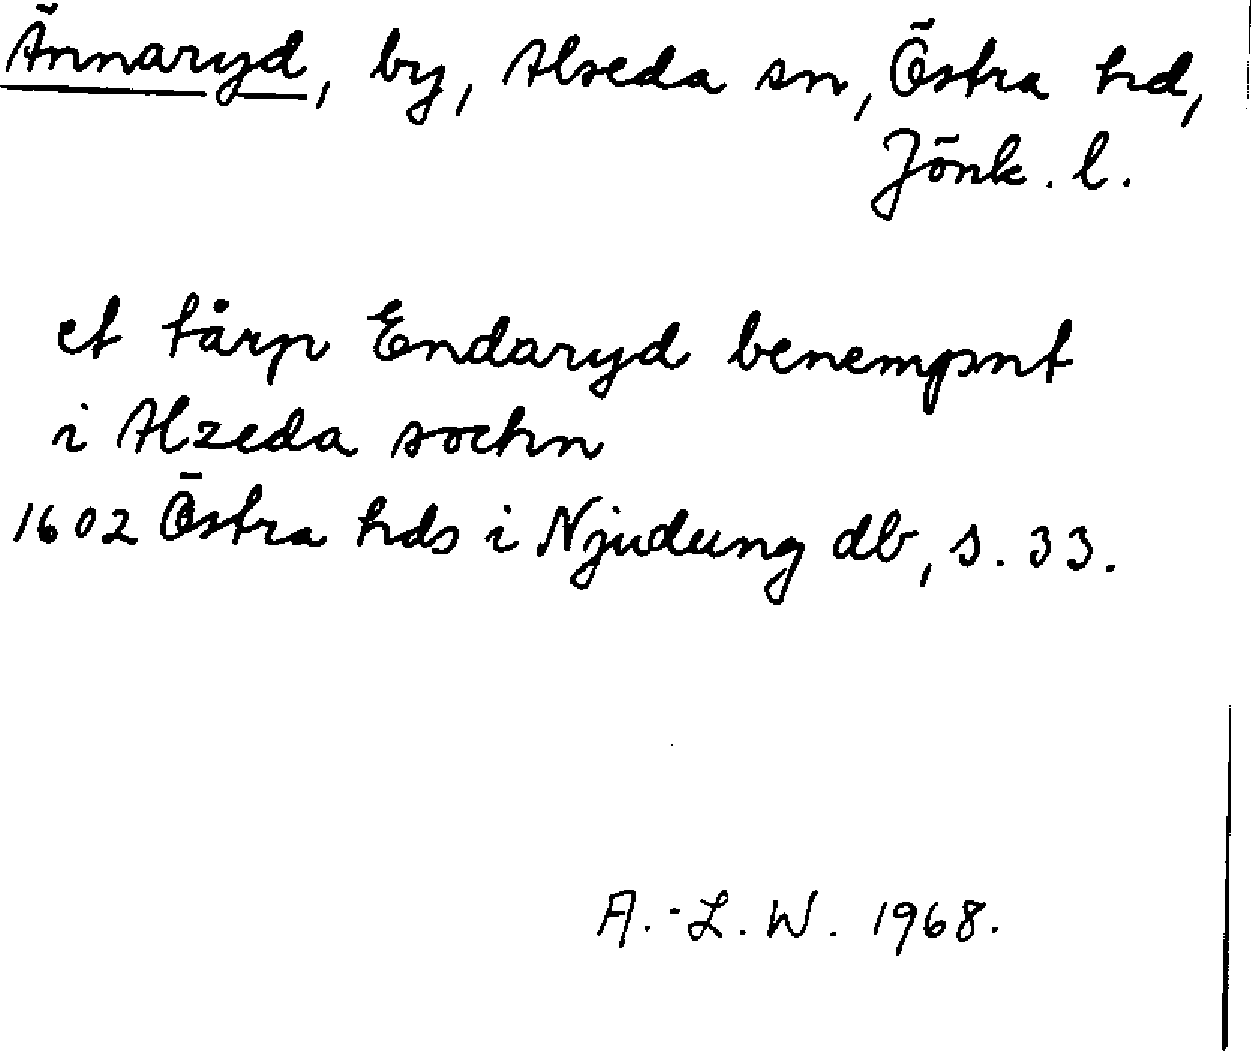 Ännaryd, by, Alseda sn, Östra hd,
Jönk. l.
et tårp Endaryd benempnt
i Alzeda sochn
1602 Östra hds i Njudung db, s. 33.
A.-L. W. 1968.